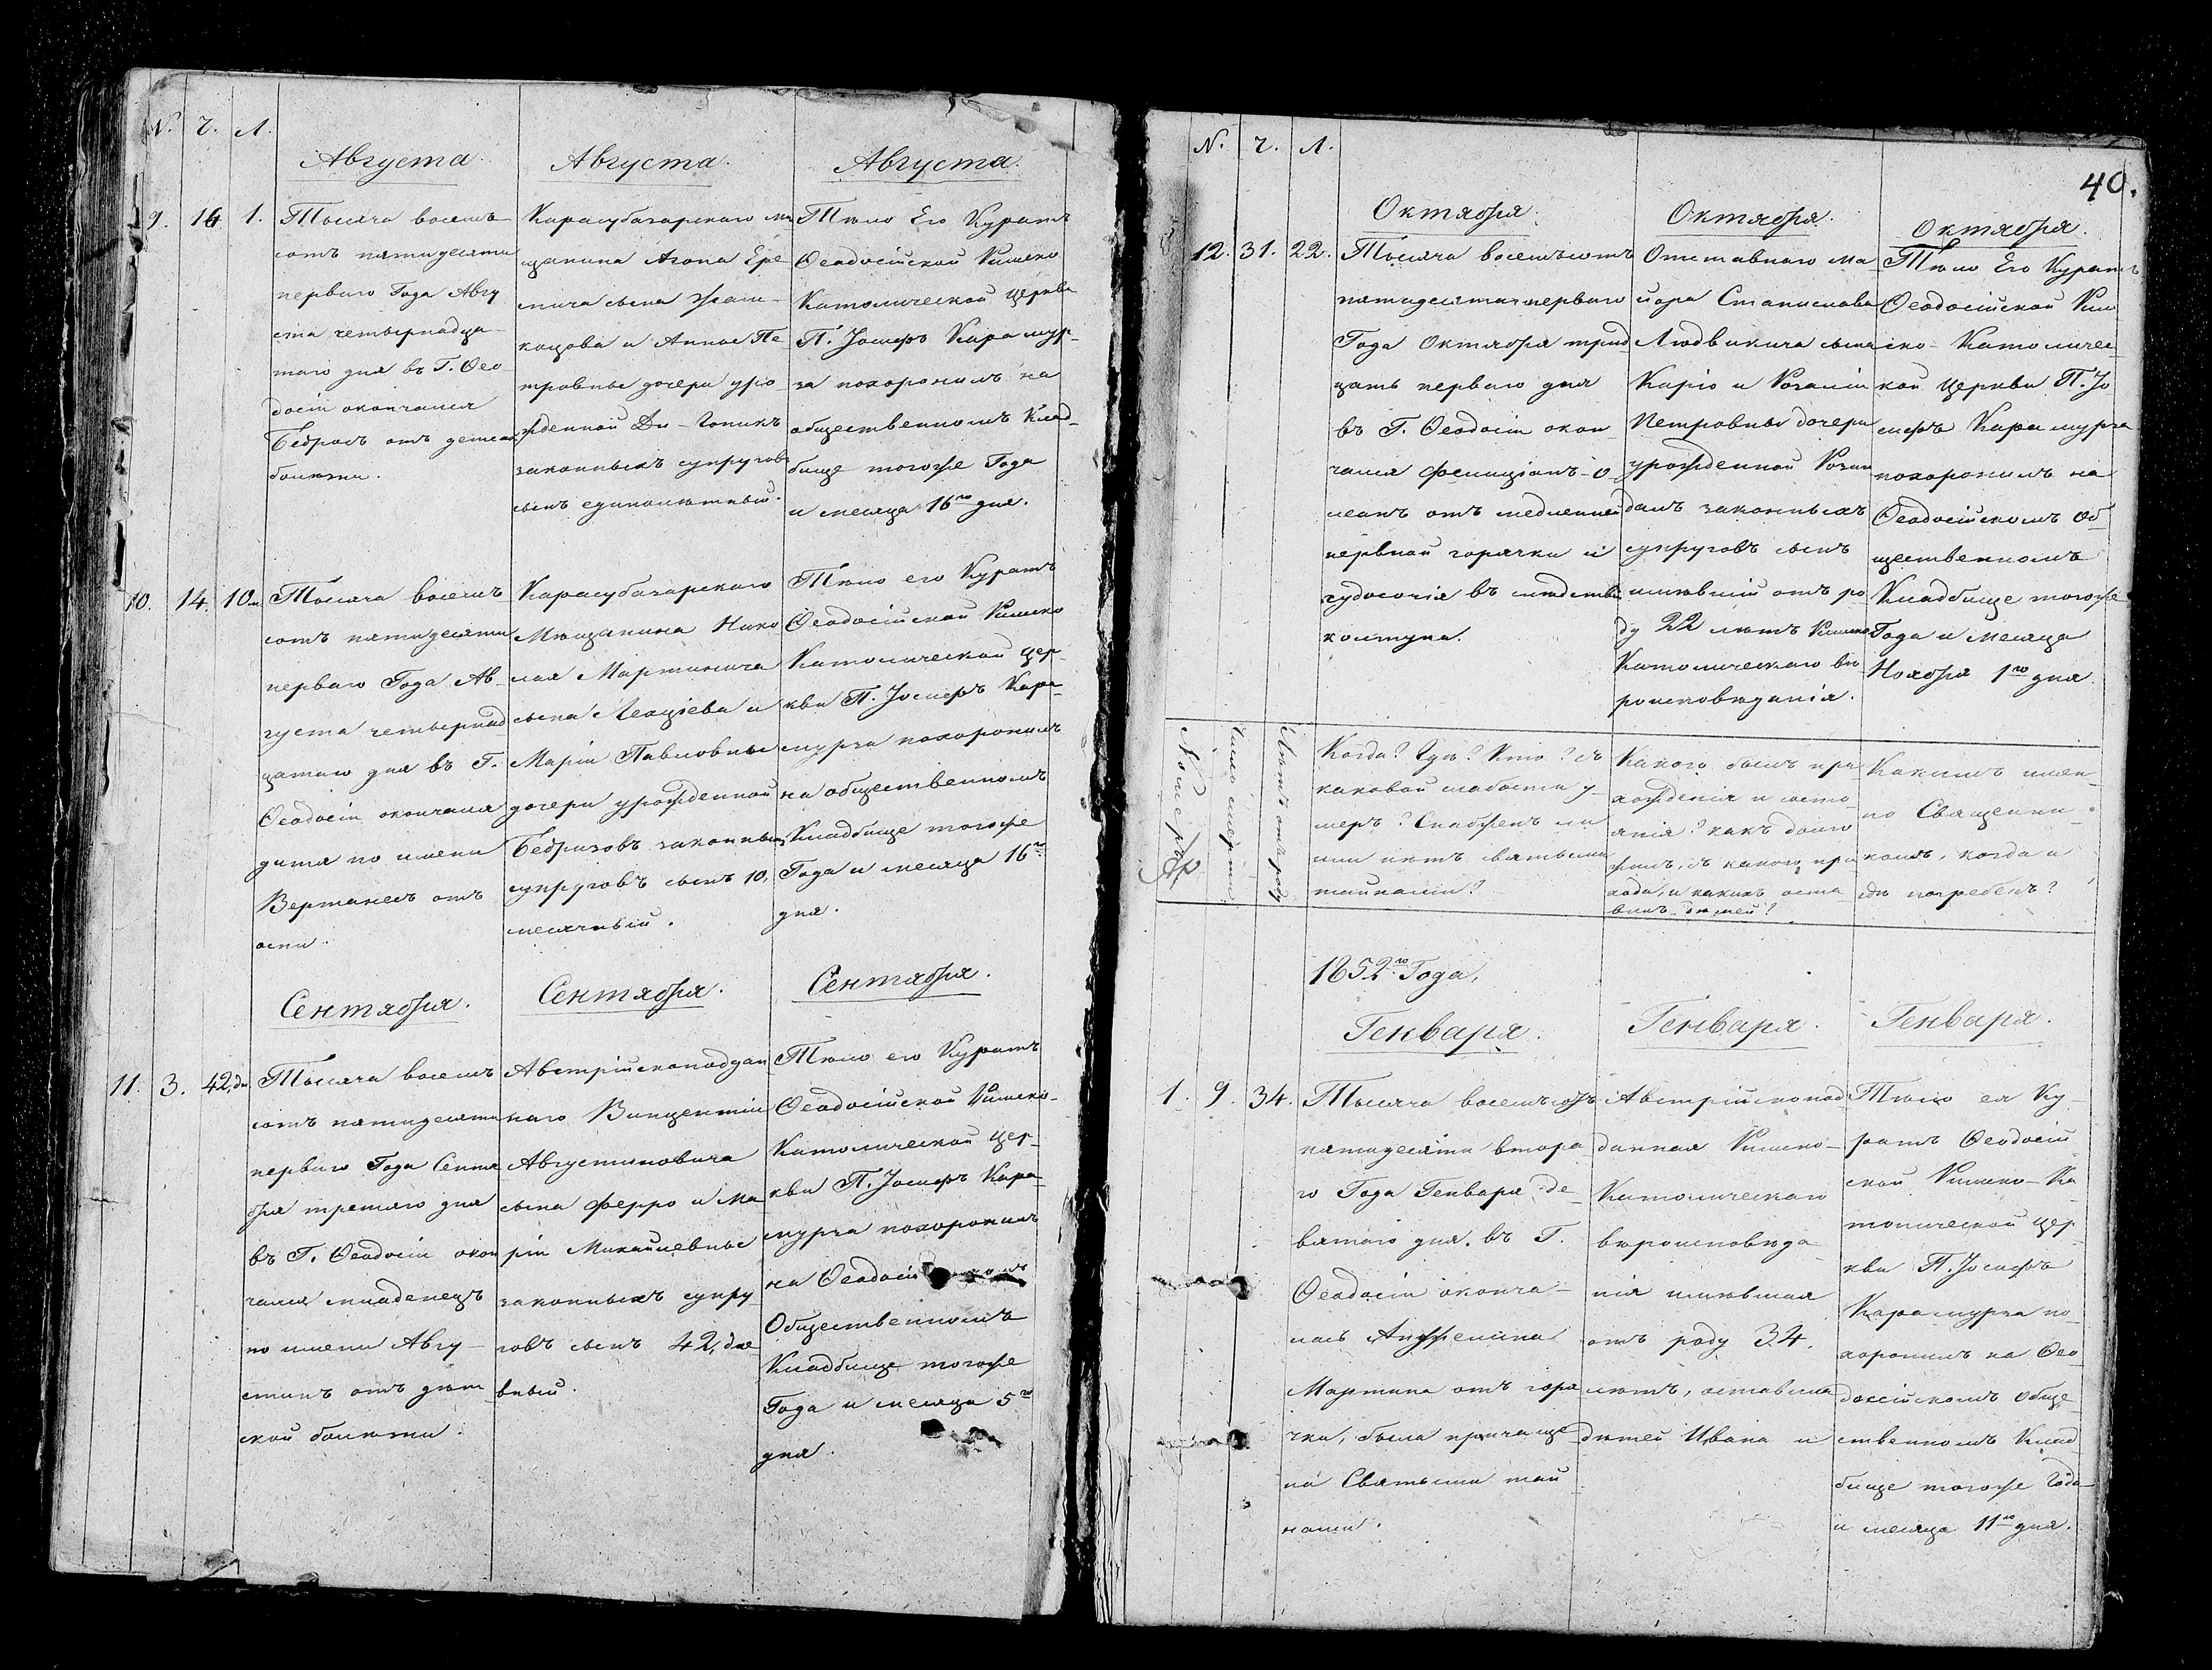 N. Ч. Л.
Августа.
9. 14 1. Тысяча восемь
сотъ пятидесяти
перваго Года Авгу
ста четырнадца
таго дня въ Г. Ѳео
досіи окончался
Бедросъ отъ детской
болѣзни.
Августа.
Карасубазарскаго мѣ
щанина Агопа Ере
мича сына
и Анны Пе
тровны дочери уро
жденной
законныхъ супруговъ
сынъ единолѣтный.
Августа.
Тѣло Его Куратъ
Ѳеодосійской Римско
Католической Церкви
П. Іосифъ Кара мур-
за похоронилъ на
общественномъ Клад-
бище тогоже Года
и месяца 16го дня.
10. 14. 10 м. Тысяча восемь
сотъ пятидесяти
перваго Года Ав-
густа четырнад
цатаго дня въ Г.
Ѳеодосіи окончался
дитя по имени
Вертанесъ отъ
оспи.
Карасубазарскаго
Мѣщанина Нико
лая Мартинича
сына и
Маріи Павловны
дочери урожденной
законныхъ
супруговъ сынъ 10,
месячный.
Тѣло его Куратъ
Ѳеодосійской Римско
Католической Цер-
кви П. Іосифъ Кара-
мурза похоронилъ
на общественномъ
Кладбище тогоже
Года и месяца 16го
дня.
Сентября.
11. 3. 42, дн. Тысяча восемь
сотъ пятидесяти
перваго Года Сентя
бря третяго дня
въ Г. Ѳеодосіи окон
чался младенецъ
по имени Авгу-
стинъ отъ дѣт
ской болѣзни.
Сентября.
Австрійскоподдан
наго Винцентія
Августиновича
сына Ферро и Ма
ріи Михайлевны
законныхъ супру-
говъ сынъ 42, дне
вный.
Сентября.
Тѣло его Куратъ
Ѳеодосійской Римско-
Католической Цер-
кви П. Іосифъ Кара-
мурза похоронилъ
на
Общественномъ
Кладбище тогоже
Года и месяца 5го
дня.
40.
N. Ч. Л.
Октября.
12. 31. 22. Тысяча восемьсотъ
пятидесяти перваго
Года Октября трид
цать перваго дня
въ Г. Ѳеодосіи окон
чался Фелиціанъ
отъ медленней
нервной горячки и
худосочія въ следствіи
колтуна.
Октября.
Отставнаго ма-
іора Станислава
Людвикича сына
и Розаліи
Петровны дочери
урожденной
законныхъ
супруговъ сынъ
имѣвшій отъ ро
ду 22 лѣтъ Римско
Католическаго вѣ
роисповѣданія.
Октября.
Тѣло Его Куратъ
Ѳеодосійской Рим
ско-Католичес-
кой Церкви П. Іо
сифъ Кара мурза
похоронилъ на
Ѳеодосійскомъ Об-
щественномъ
Кладбище тогоже
Года и месяца
Ноября 1го дня.
Номеръ
Число смерти
Лѣтъ отъ роду
Когда? Гдѣ? Кто? съ
каковой слабости у-
меръ? Снабженъ ли
или нѣтъ святыми
тайнами?
Какого былъ про
хожденія и состо-
янія? какъ долго
жилъ, съ какого при
хода, и какихъ оста
вилъ дѣтей?
Какимъ имен-
но Священни-
комъ, когда и
гдѣ погребенъ?
1852го Года.
Генваря.
1. 9. 34. Тысяча восемьсотъ
пятидесяти втора
го Года Генваря де-
вятаго дня въ Г.
Ѳеодосіи оконча-
лась Анжелина
Мартина отъ горя
чки, была причаще
на Святыми тай
нами.
Генваря.
Австрійскопод
данная Римско-
Католическаго
вѣроисповѣда
нія имѣвшая
отъ роду 34.
лѣтъ, оставила
дѣтей Ивана и
Генваря.
Тѣло ея Ку-
ратъ Ѳеодосій
ской Римско-Ка
толической Цер-
кви П. Іосифъ
Карамурза по-
хоронилъ на Ѳео-
досійскомъ обще
ственномъ Клад
бище тогоже Года
и месяца 11го дня.